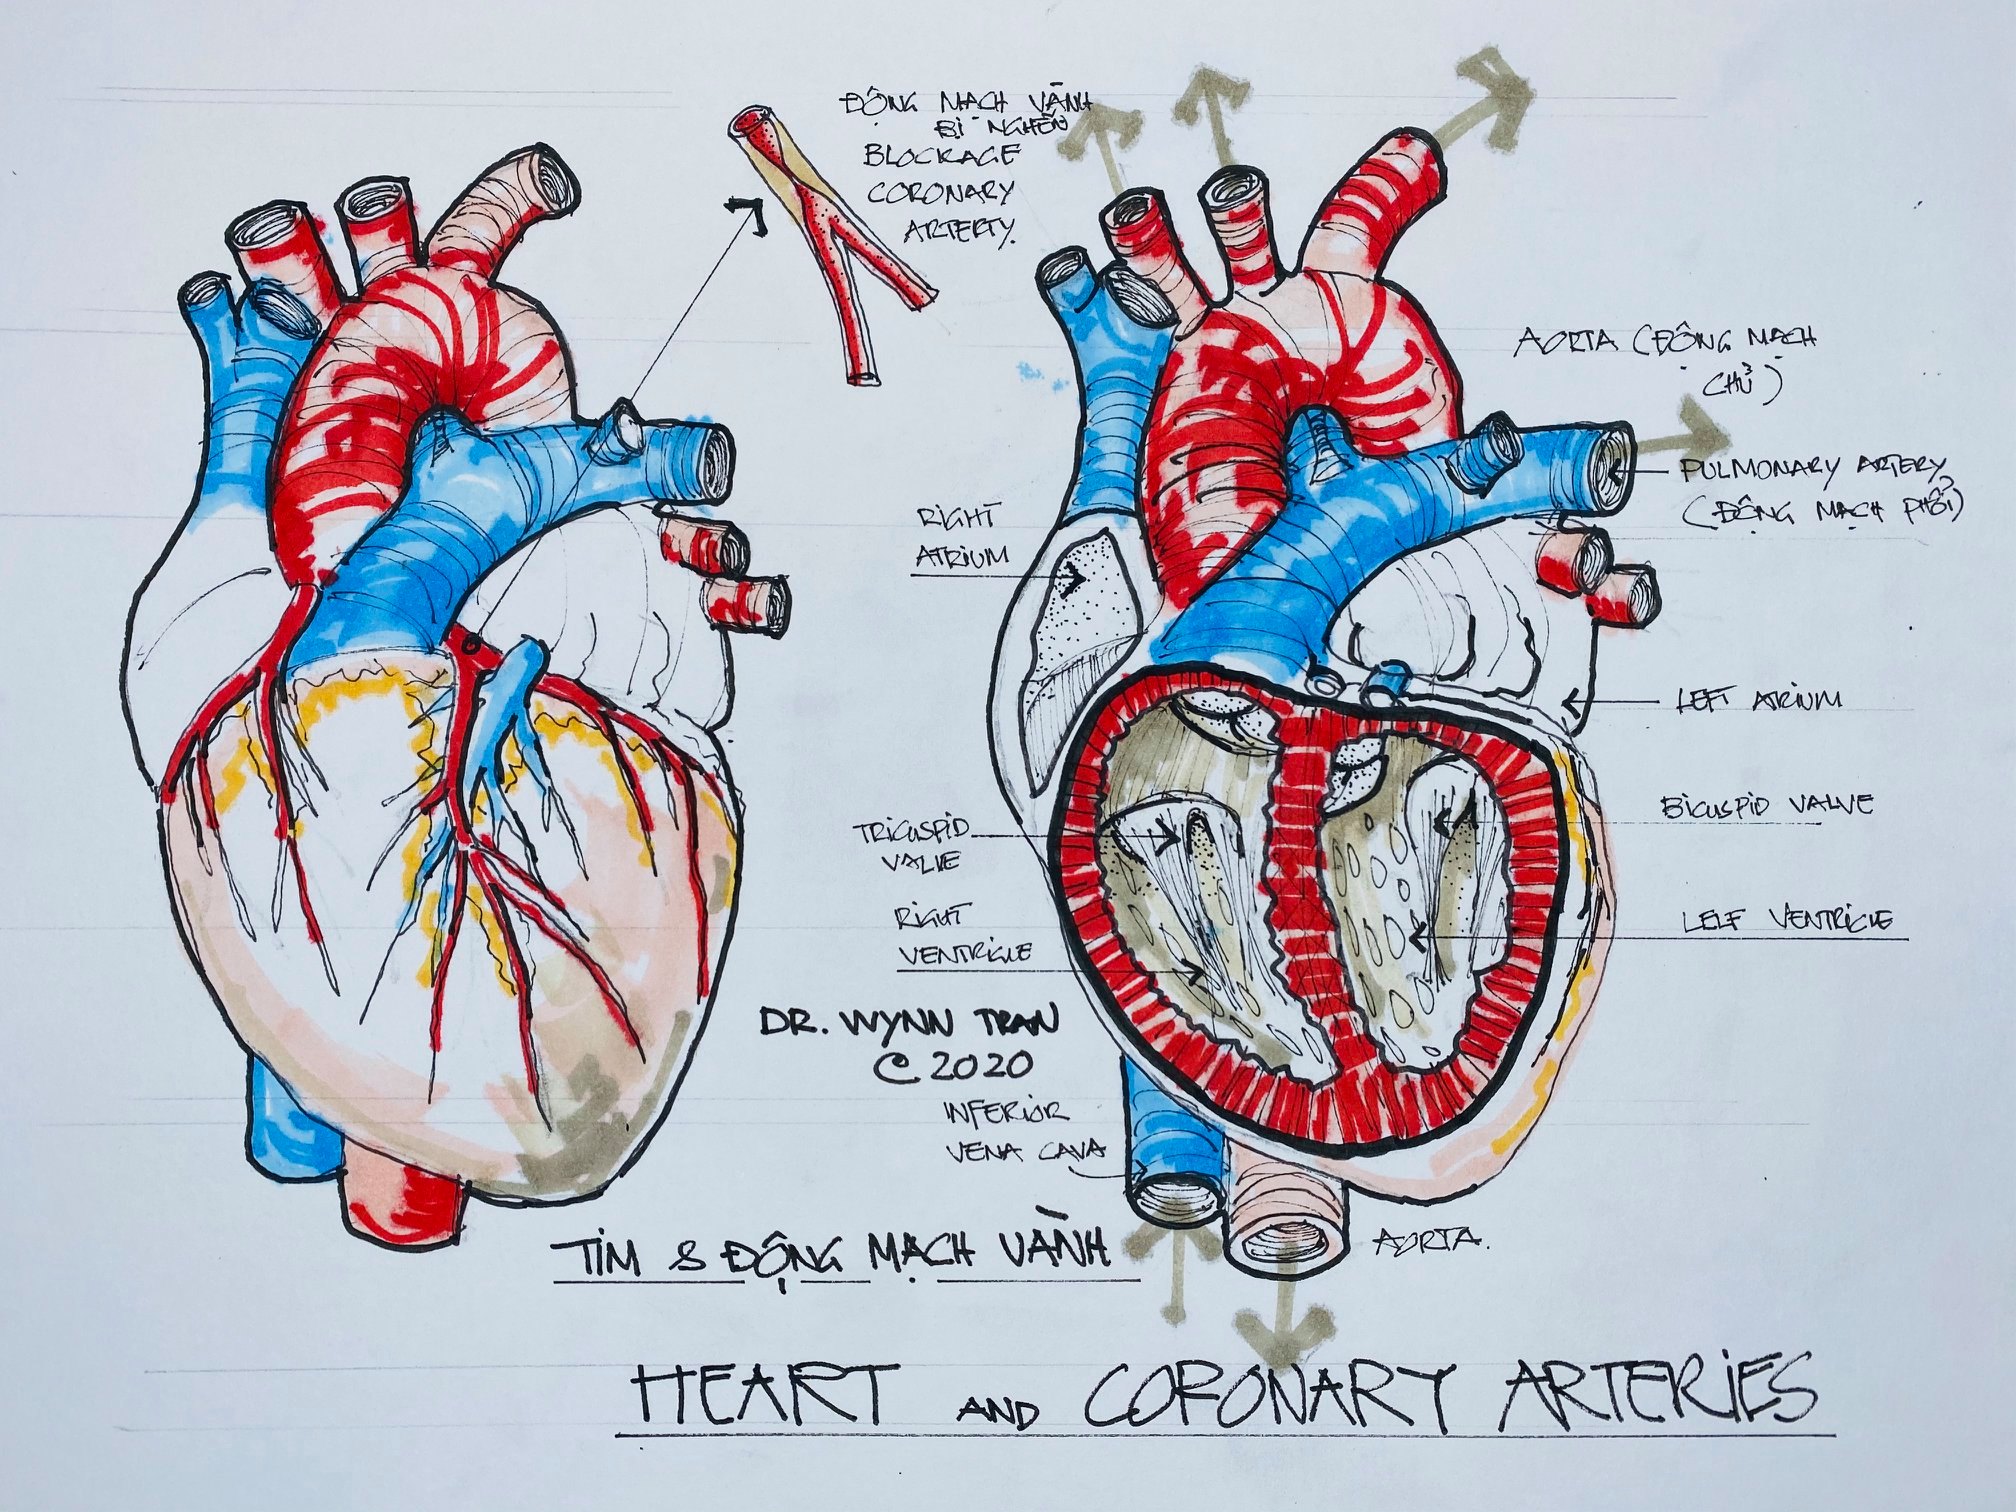 ĐỘNG MẠCH VÀNH
BỊ NGHẼN
BLOCKAGE
CORONARY
ARTERTY.
AORTA (ĐỘNG MẠCH
CHỦ)
PULMONARY ARTERY
(ĐỘNG MẠCH PHỔI)
RIGHT
ATRIUM
LEFT ATRIUM
TRICUSPID
VALVE
BICUSPID VALVE
RIGHT
VENTRICLE
LELF VENTRICLE
DR. WYNN TRAN
© 2020
INFERIOR
VENA CAVA
AORTA.
TIM & ĐỘNG MẠCH VÀNH
HEART AND CORONARY ARTERIES